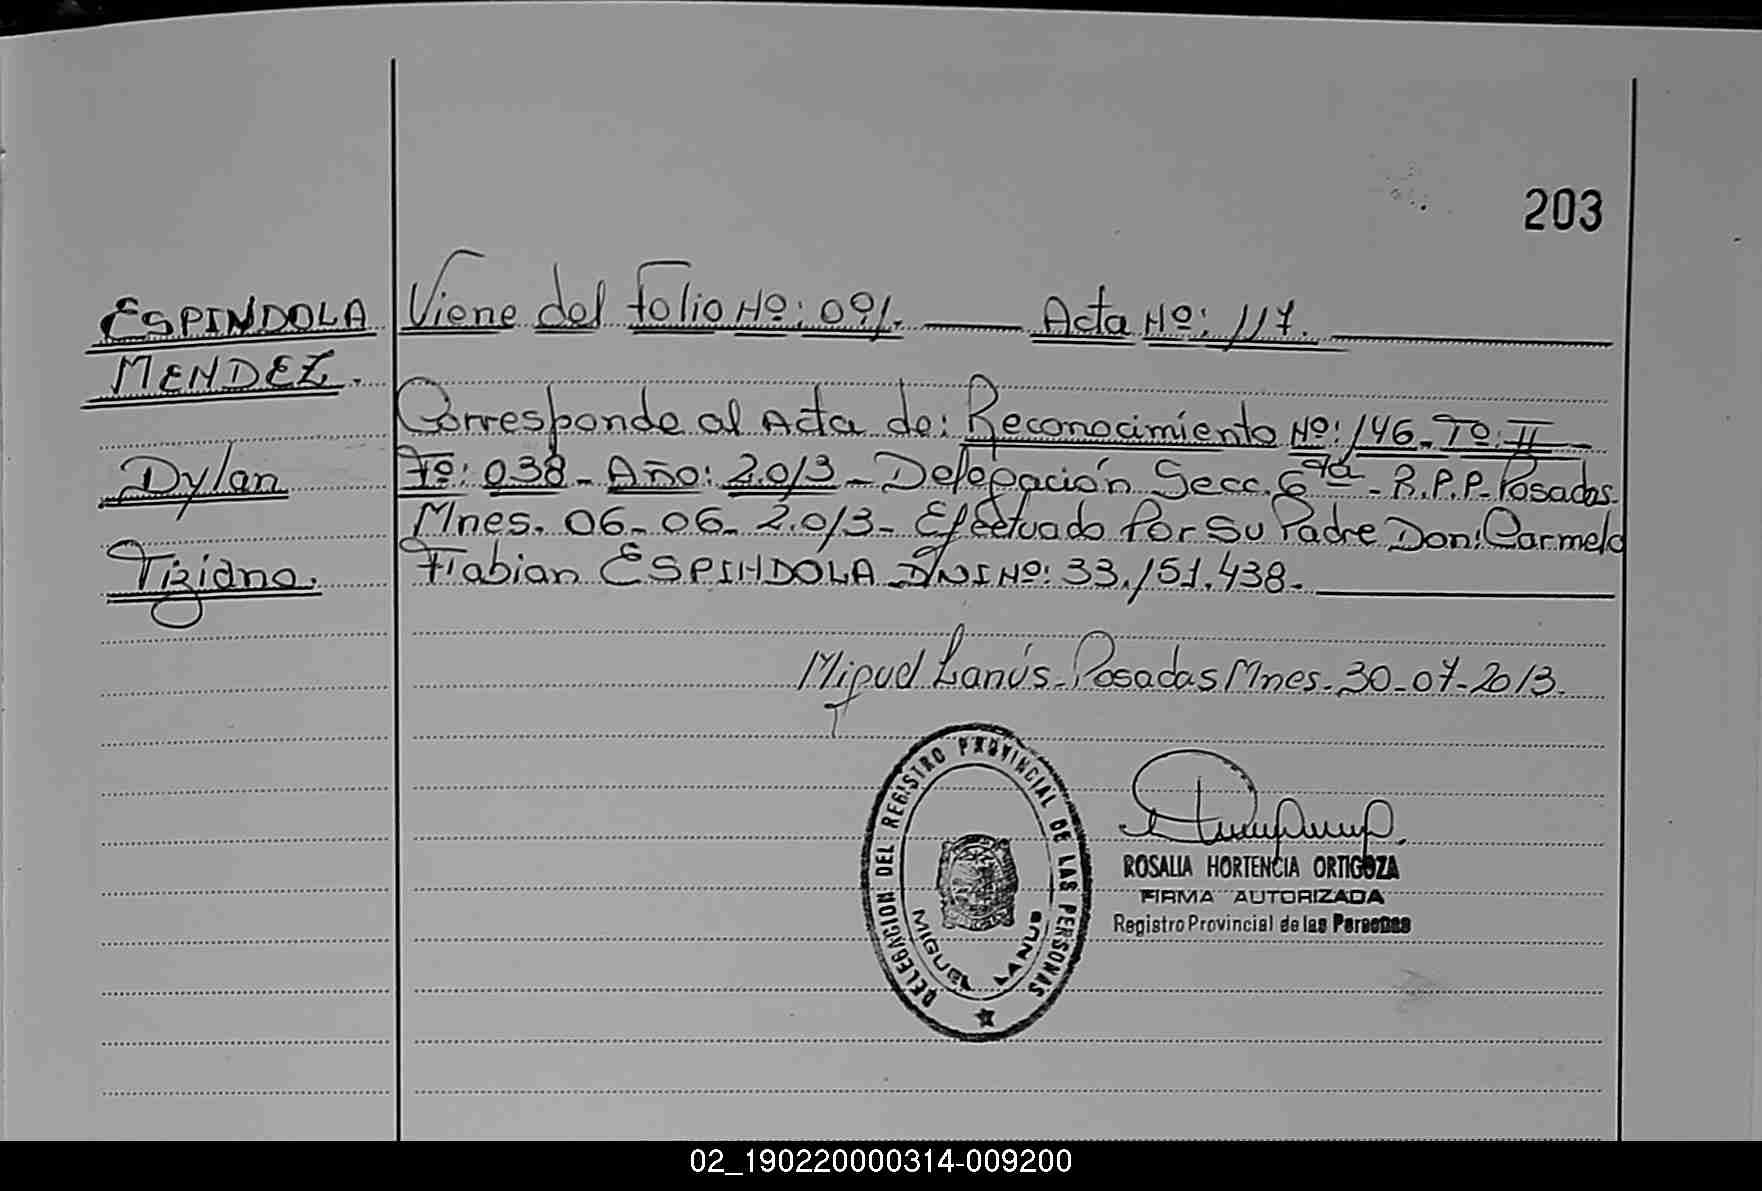 203
ESPINDOLA
MENDEZ.
Dylan
Tiziano.
Viene del folio Nº: 091. Acta Nº: 117.
Corresponde al Acta de: Reconocimiento Nº: 146. Tº: II
Fº: 038 - Año: 2.013 - Delegación Secc. 6ta - R.P.P. Posadas.
Mnes. 06-06-2.013- Efectuado Por Su Padre Don: Carmelo
Fabian ESPINDOLA DNI Nº: 33.151.438.
Miguel Lanús - Posadas Mnes. 30-07-2013.
DELEGACION DEL REGISTRO PROVINCIAL DE LAS PERSONAS
MIGUEL LANUS
ROSALIA HORTENCIA ORTIGOZA
FIRMA AUTORIZADA
Registro Provincial de las Personas
02_190220000314-009200